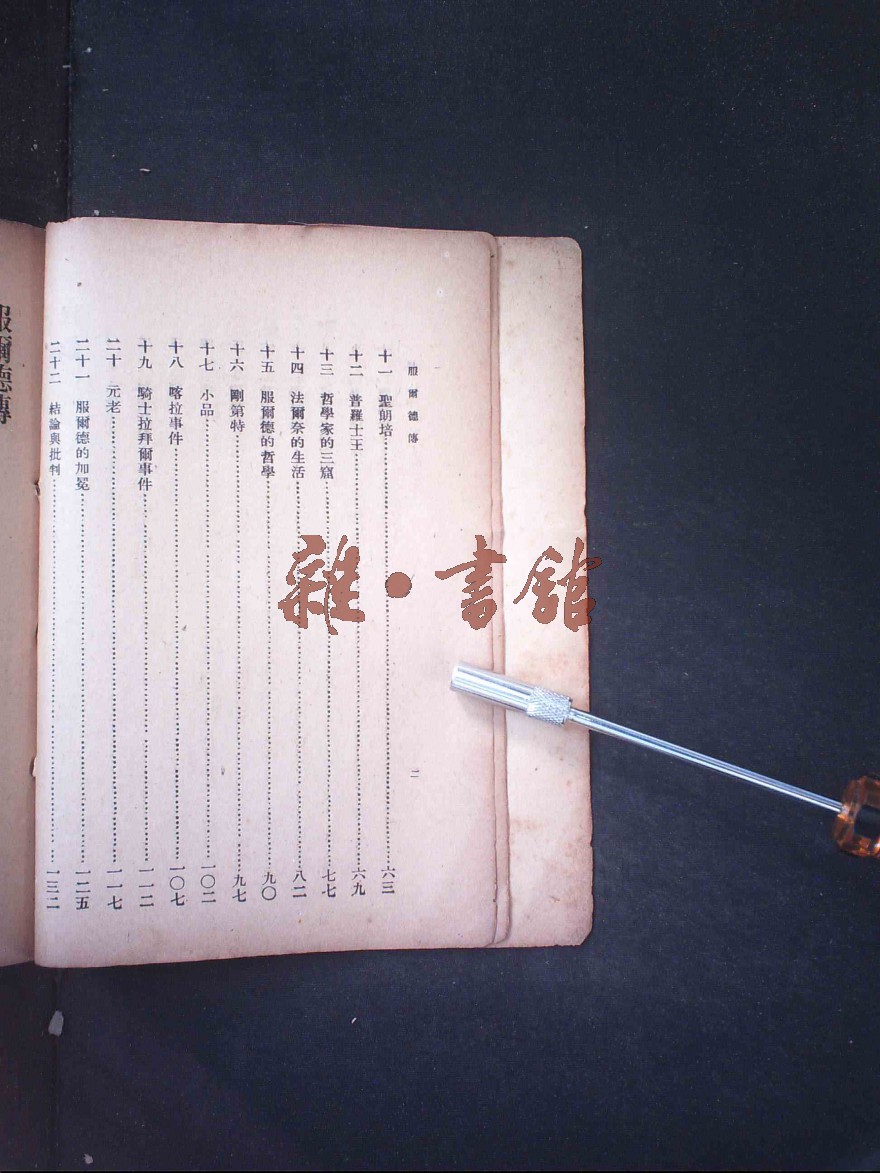 服爾德傳
二
十一 聖朗培 六三
十二 普羅士王 六九
十三 哲學家的三窟 七七
十四 法爾奈的生活 八二
十五 服爾德的哲學 九〇
十六 剛第特 九七
十七 小品 一〇二
十八 喀拉事件 一〇七
十九 騎士拉拜爾事件 一一二
二十 元老 一一七
二十一 服爾德的加冕 一二五
二十二 結論與批判 一三二
服爾德傳
雜·書館